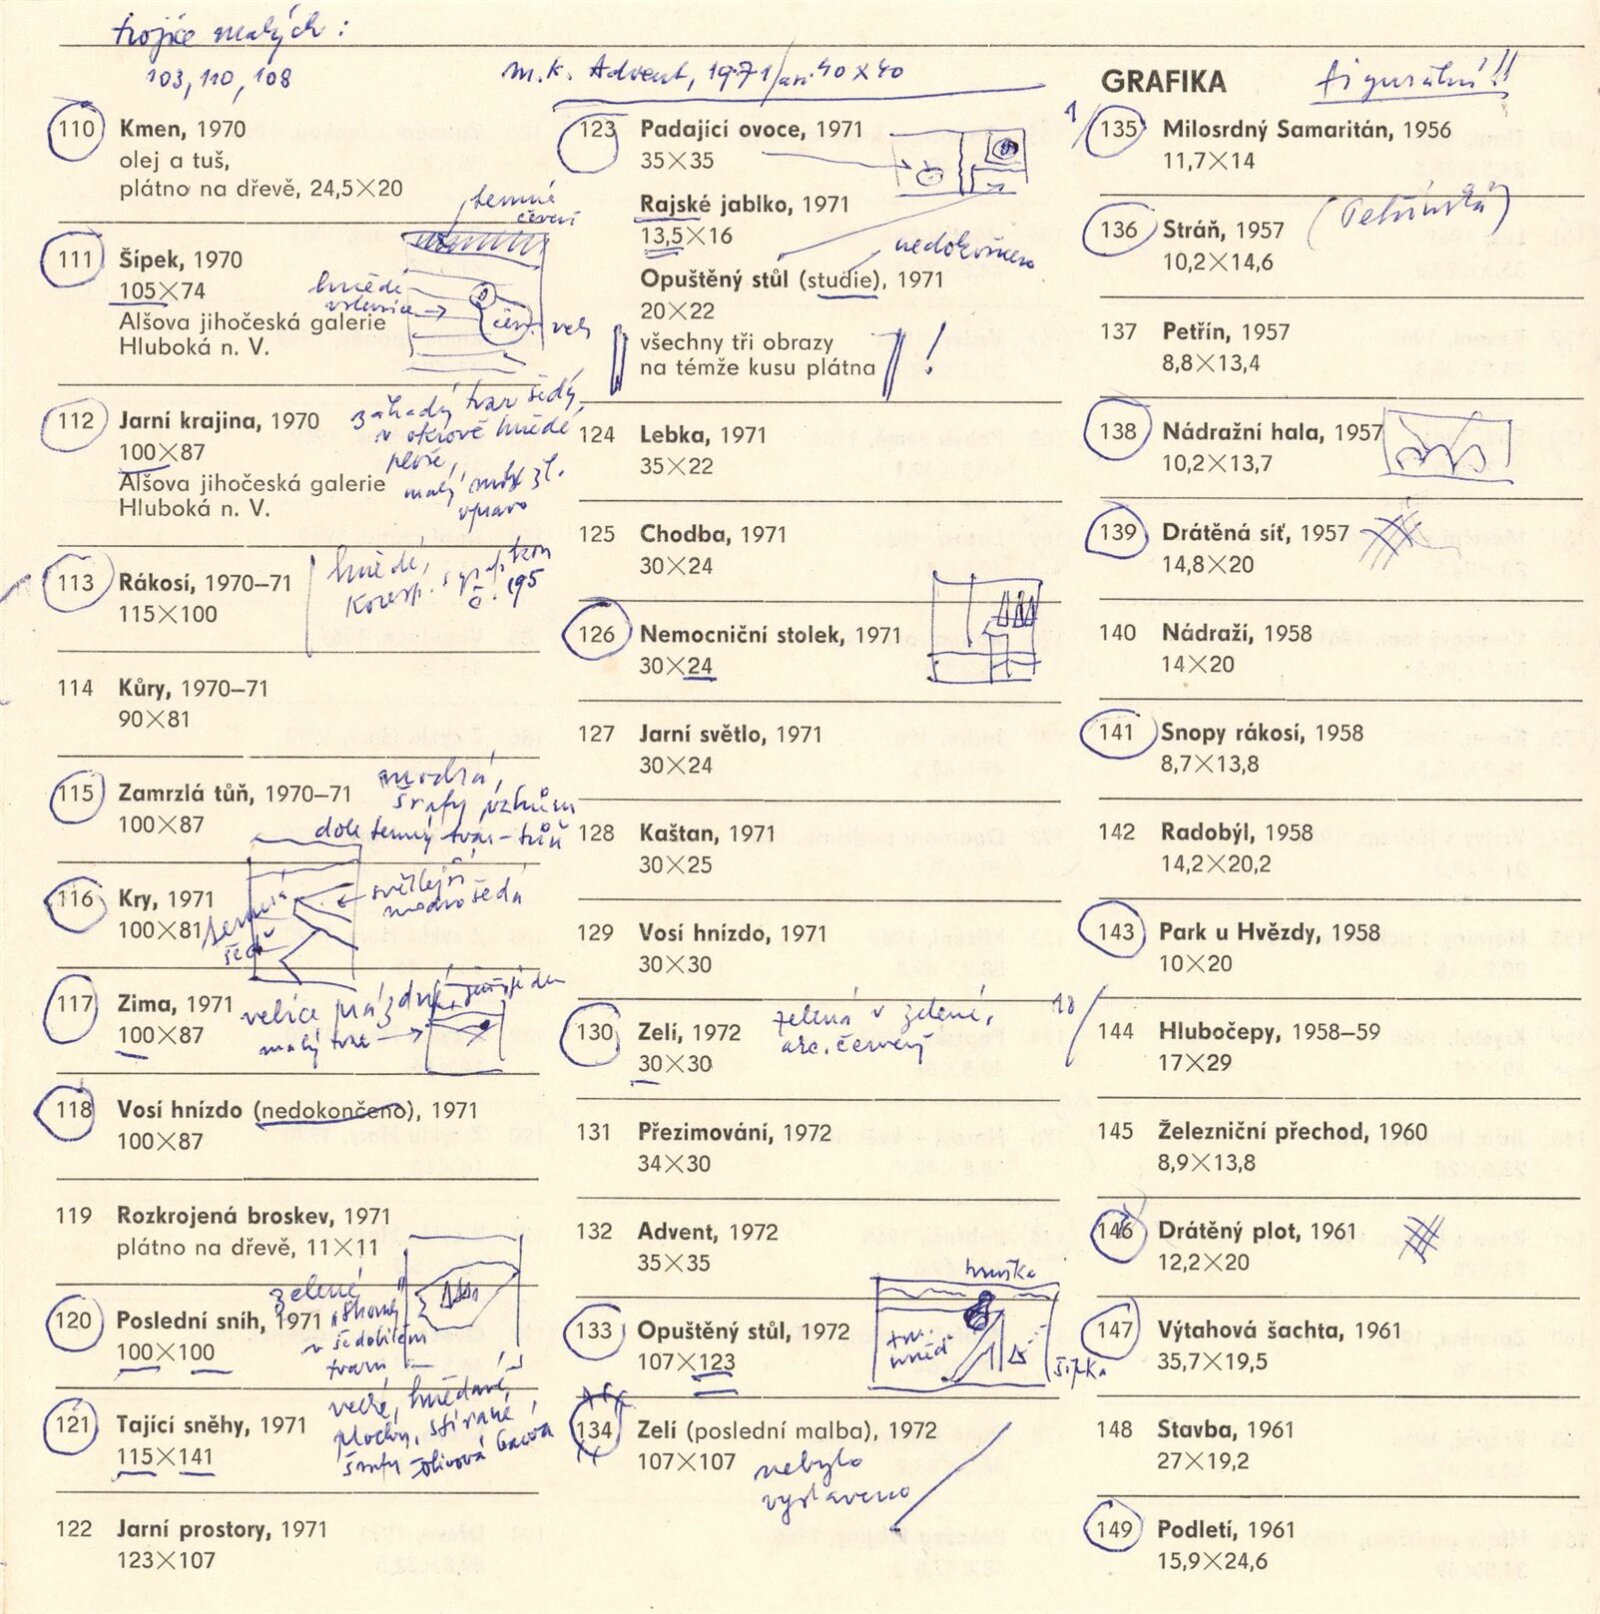 trojice malých:
103, 110, 108
110 Kmen, 1970
olej a tuš,
plátno na dřevě, 24,5×20
temné
červení
111 Šípek, 1970
105×74
Alšova jihočeská galerie
Hluboká n. V.
hnědé
vrstevnice
112 Jarní krajina, 1970
100×87
Alšova jihočeská galerie
Hluboká n. V.
záhadný tvar šedý,
v okrově hnědé
ploše,
malý
vpravo
113 Rákosí, 1970–71
115×100
hnědé,
koresp. s
č. 195
114 Kůry, 1970–71
90×81
115 Zamrzlá tůň, 1970–71
100×87
modrá,
šrafy vzhůru
dole temný tvar - tůň
116 Kry, 1971
100×81
temná
šeď
světlejší
modrošedá
117 Zima, 1971
100×87
velice prázdné,
malý tvar
118 Vosí hnízdo (nedokončeno), 1971
100×87
119 Rozkrojená broskev, 1971
plátno na dřevě, 11×11
120 Poslední sníh, 1971
100×100
zelené
v šedobílém
tvaru
121 Tající sněhy, 1971
115×141
velké, hnědavé,
plochy, stírané,
šrafy olivová barva
122 Jarní prostory, 1971
123×107
M.K. Advent, 1971/asi 40×40
123 Padající ovoce, 1971
35×35
Rajské jablko, 1971
13,5×16
nedokončeno
Opuštěný stůl (studie), 1971
20×22
všechny tři obrazy
na témže kusu plátna
!
124 Lebka, 1971
35×22
125 Chodba, 1971
30×24
126 Nemocniční stolek, 1971
30×24
127 Jarní světlo, 1971
30×24
128 Kaštan, 1971
30×25
129 Vosí hnízdo, 1971
30×30
130 Zelí, 1972
30×30
zelená v zelené,
arc. červený
131 Přezimování, 1972
34×30
132 Advent, 1972
35×35
hruška
133 Opuštěný stůl, 1972
107×123
tm.
hněď
šířka
134 Zelí (poslední malba), 1972
107×107
nebylo
vystaveno
GRAFIKA
figurální!!
1/
135 Milosrdný Samaritán, 1956
11,7×14
136 Stráň, 1957
10,2×14,6
(Petřínská)
137 Petřín, 1957
8,8×13,4
138 Nádražní hala, 1957
10,2×13,7
139 Drátěná síť, 1957
14,8×20
140 Nádraží, 1958
14×20
141 Snopy rákosí, 1958
8,7×13,8
142 Radobýl, 1958
14,2×20,2
143 Park u Hvězdy, 1958
10×20
18/
144 Hlubočepy, 1958–59
17×29
145 Železniční přechod, 1960
8,9×13,8
146 Drátěný plot, 1961
12,2×20
147 Výtahová šachta, 1961
35,7×19,5
148 Stavba, 1961
27×19,2
149 Podletí, 1961
15,9×24,6